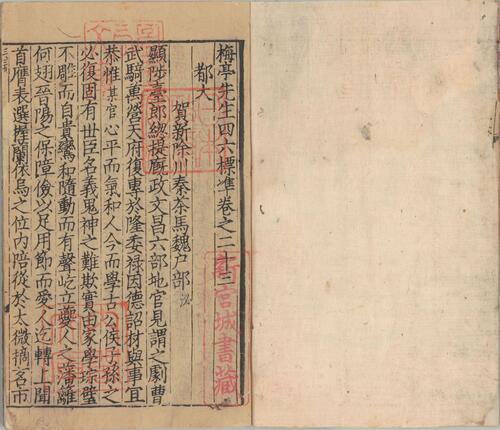 梅亭先生四六標準卷之二十三
都大
賀新除川秦茶馬魏戶部
顯陟臺郎緫提廐政文昌六部地官見謂之劇曹
武騎萬營天府復專於隆委祿因德詔材與事宜
恭惟某官心平而氣和人今而學古公侯子孫之
必復固有世臣名義鬼神之難欺實由家學琮璧
不雕而自貴鸞和隨動而有聲屹立夔人之藩籬
何翅晉陽之保障儉以足用節而愛人迄轉上聞
首膺表選握蘭依烏之位内陪從於太微摛名市
新宮城書藏